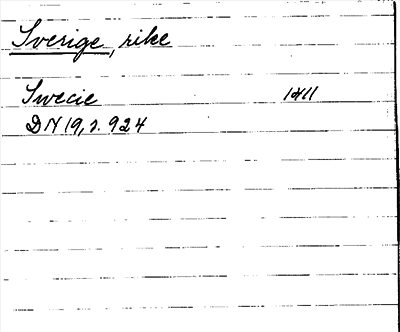 Sverige, rike
Swecie 1411
DN 19, s. 924